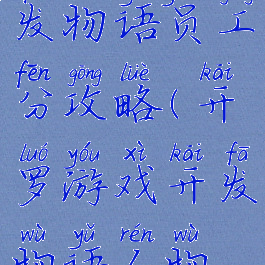 发物语员工
fēn gōng lüè kāi
分攻略(开
luó yóu xì kāi fā
罗游戏开发
wù yǔ rén wù
物语人物